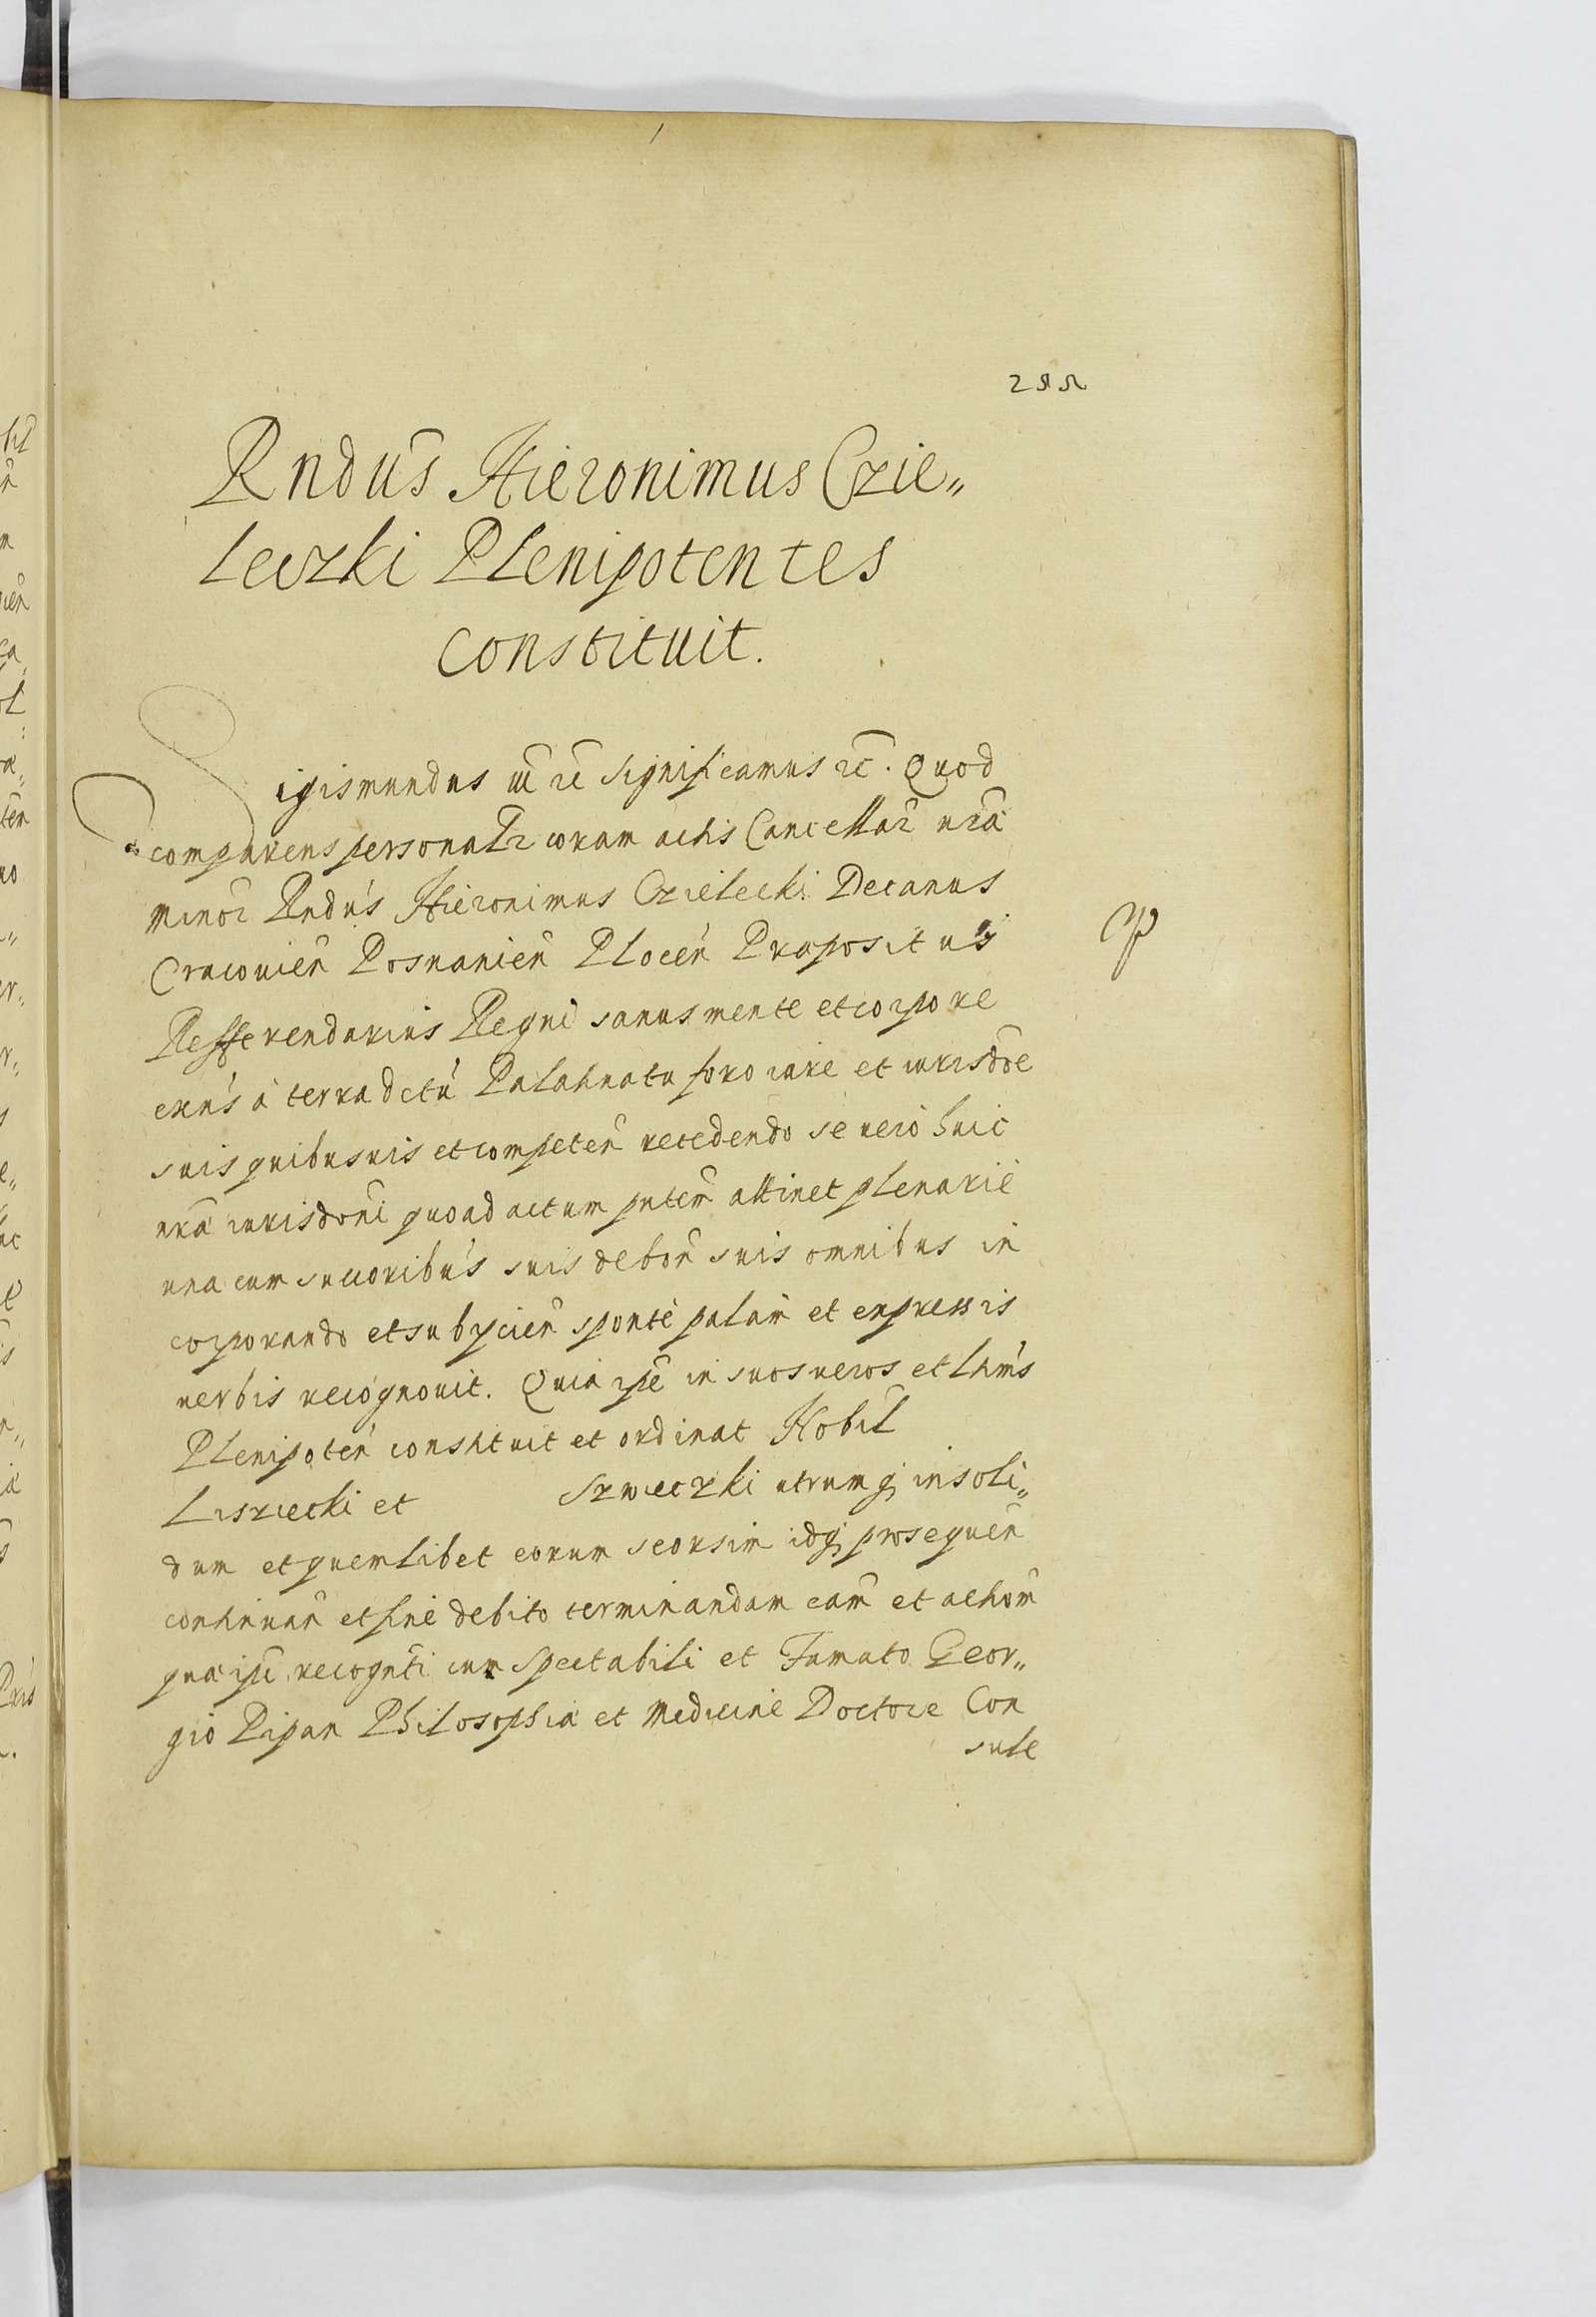 255
Rndus Hieronimus Czie„
leczki Plenipotentes
constituit.
Sigismundus III rc Significamus rc. Quod
comparens personalr coram actis Cancellar nrã
minor Rndus Hieronimus Czielecki Decanus
Cracovien Posnanien Plocen Præpositus
Refferendarius Regni sanus mente et corpore
exns à terra dctu Palatinatu foro iure et iurisdõe
suis quibusuis et competen recedendo se vero huic
nrã iurisdoni quoad actum pntem attinet plenarie
una cum succoribus suis de bon suis omnibus in
corporando et subycien sponte palam et expressis
verbis recognovit. Quia ipe in suos veros et ltimos
Plenipoten constituit et ordinat Nobil
Lisziecki et Szwieczki utrumq insoli„
dum et quemlibet eorum seorsim idq prosequen
continuan et fine debito terminandam cam et action
qua ipi recognti cum Spectabili et Famato Geor„
gio Pipan Philosophia et Medicine Doctore Con
sule